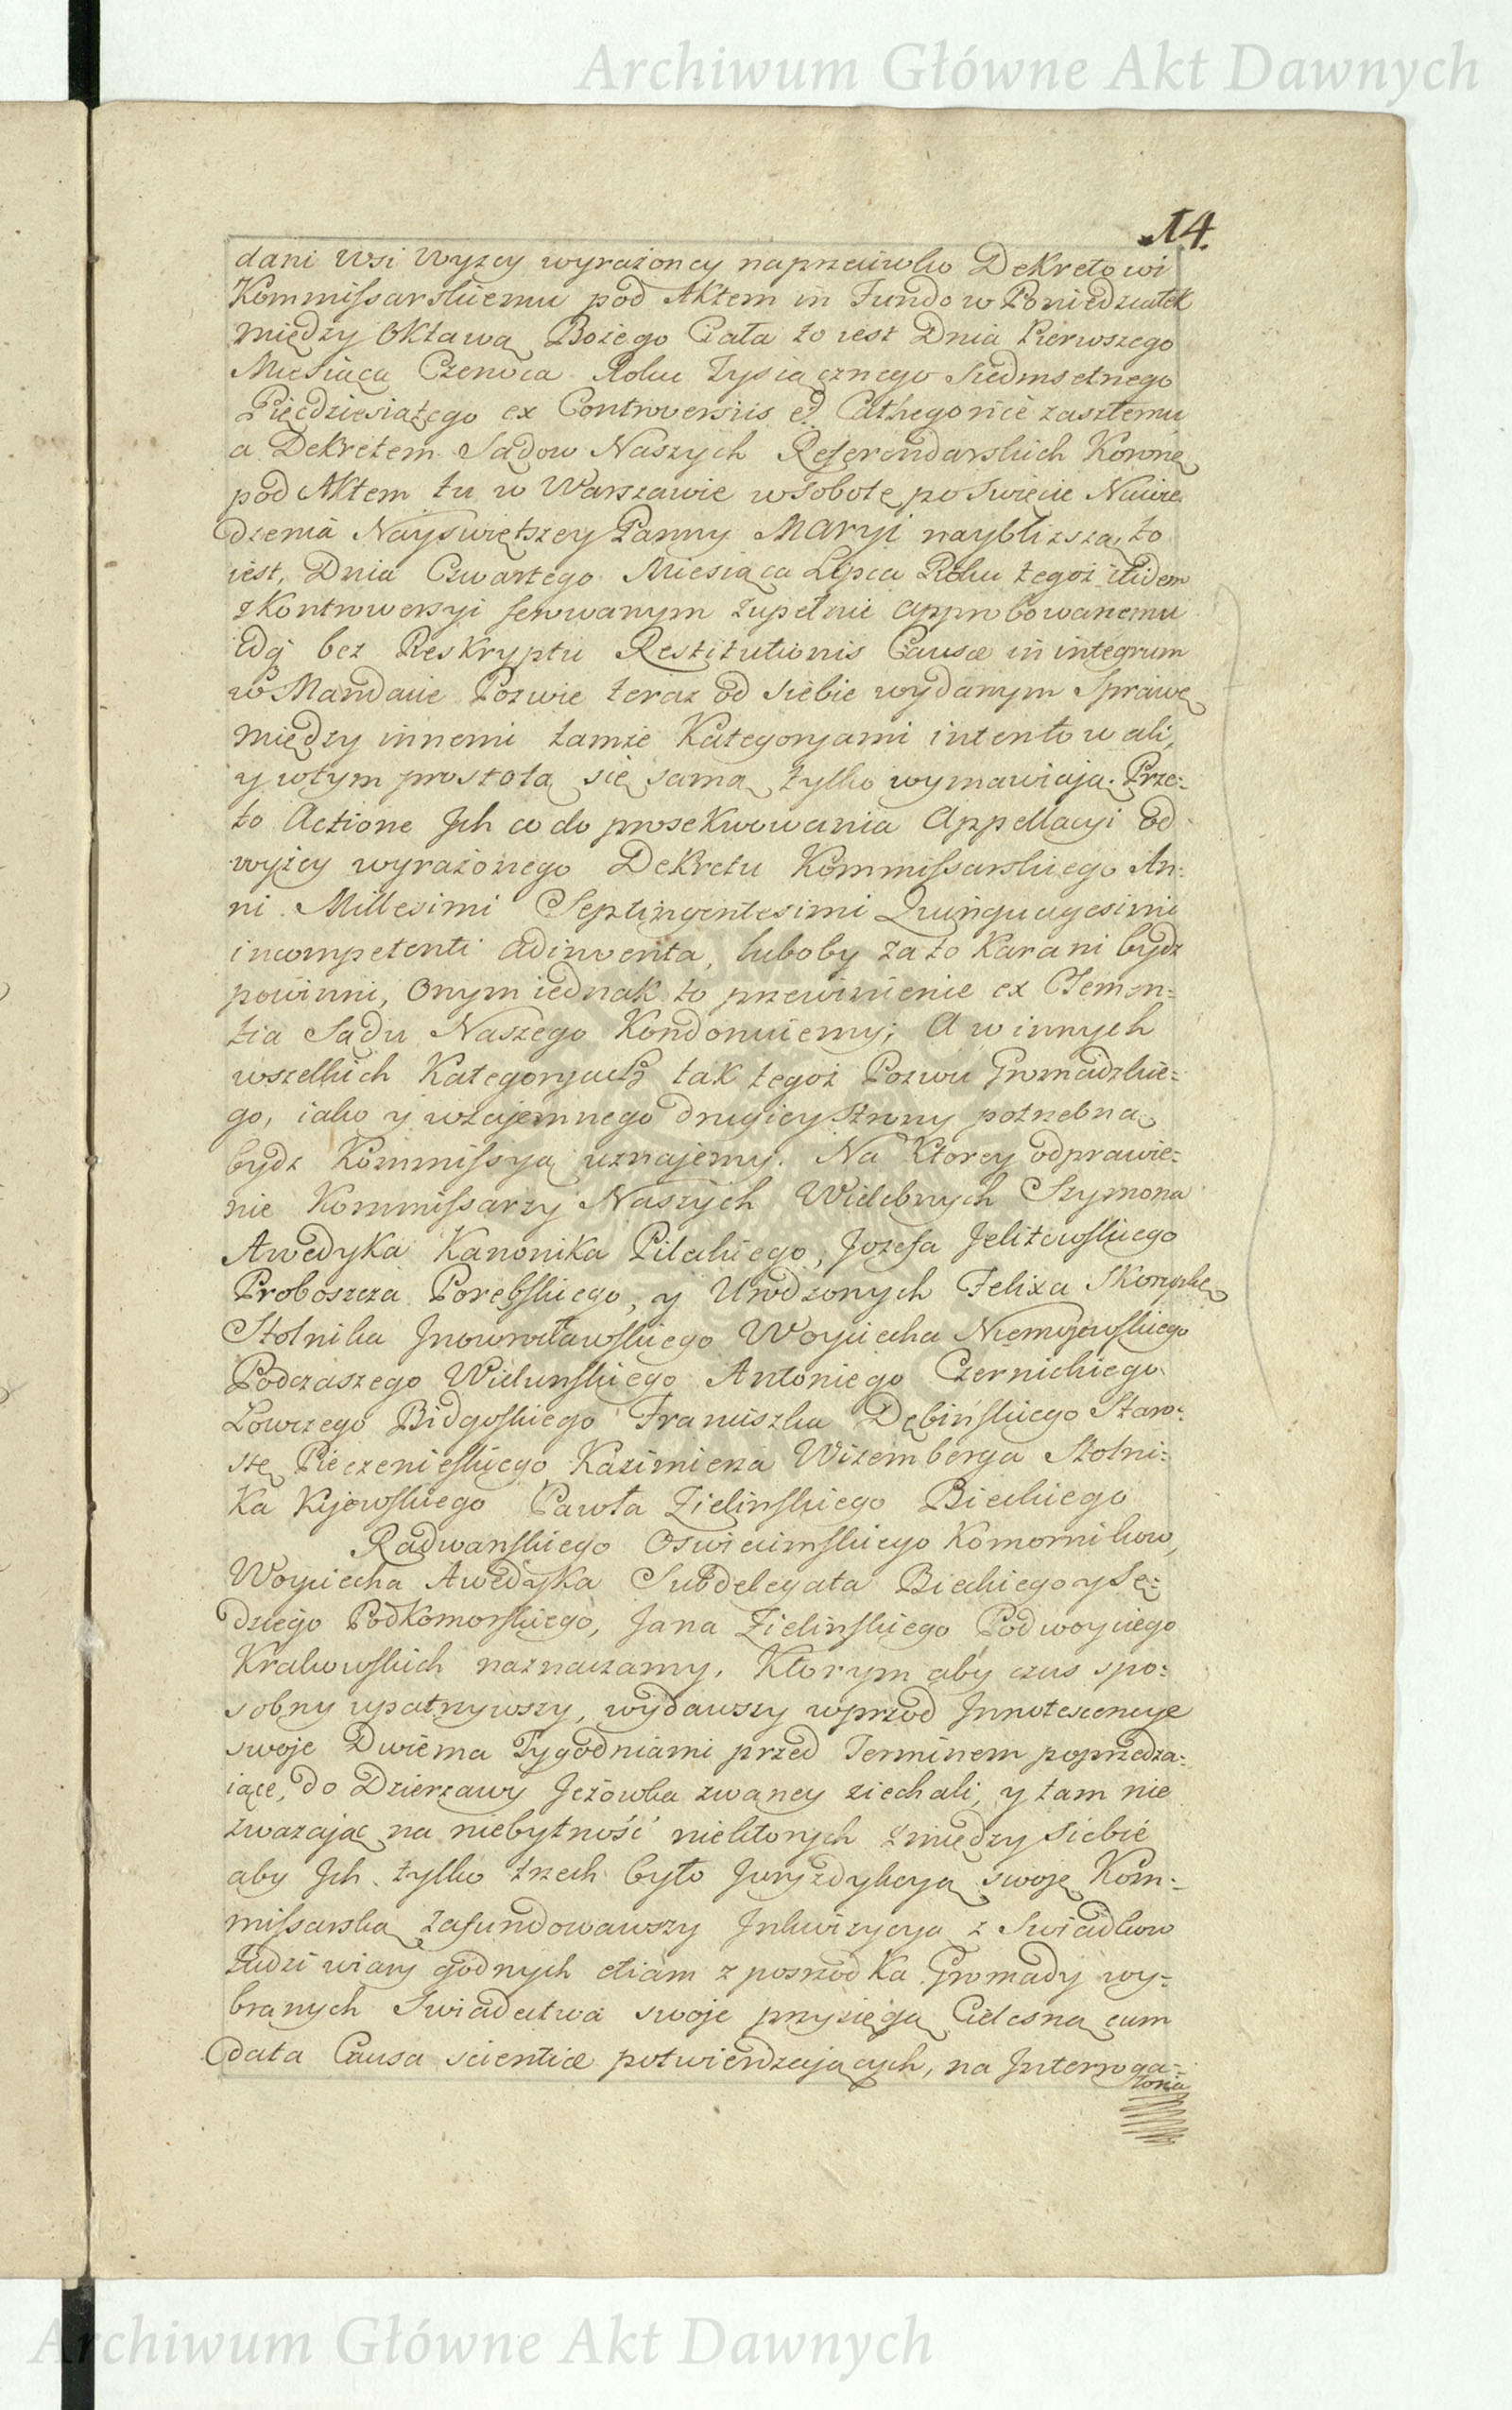 Archiwum Główne Akt Dawnych
14.
dani Wsi Wyzey wyrażoney naprzeciwko Dekretowi
Kommissarskiemu pod Aktem in Fundo w Poniedziałek
między Oktawą Bożego Ciała to iest Dnia Pierwszego
Miesiąca Czerwca Roku Tysiącznego Siedmsetnego
Pięćdziesiątego ex Controversiis et Cathegoriie zaszłemu
a Dekretem Sądow Naszych Referendarskich Koronnę
pod Aktem tu w Warszawie w Sobotę po Swięcie Nawie
dzenia Nayświętszey Panny Maryi naybliższą, to
iest, Dnia Czwartego Miesiąca Lipca Roku tegoż itidem
z Kontrowersyi ferowanym zupełnie approbowanemu
bez Reskryptu Restitutionis Causæ in integrum
w Mandacie Pozwie teraz od siebie wydanym Sprawę
między innemi tamże Kategoryami intentowali,
y wtym prostotą się samą tylko wymawiaią. Prze-
to Actione Jch co do prosekwowania Appellacyi od
wyżey wyrażonego Dekretu Kommissarskiego An-
ni Millesimi Septingentesimi Quinquagesimi
incompetenti adinventa, luboby za to Karani bydz
powinni, Onym iednak to przewinienie ex Clemen-
tia Sądu Naszego Kondonuiemy; A w innych
wszelkich Kategoryach tak tegoż Pozwu Gromadzkie-
go, iako y wzajemnego drugiey Strony potrzebną
bydz Kommissyą uznajemy. Na Ktorey odprawie-
nie Kommissarzy Naszych Wielebnych Szymona
Awedyka Kanonika Pileckiego, Jozefa Jelitowskiego
Proboszcza Porębskiego, y Urodzonych Felixa Skorupkę
Stolnika Jnowrocławskiego Woyciecha Niemojewskiego
Podczaszego Wielunskiego Antoniego Czernickiego
Łowczego Bidgoskiego Franciszka Dębińskiego Staro-
stę Pieczenieskiego Kazimierza Wizemberga Stolni-
ka Kijowskiego Pawła Zielinskiego Bieckiego
Radwanskiego Oswiecimskiego Komornikow,
Woyciecha Awedyka Subdelegata Bieckiego y Sę-
dziego Podkomorskiego, Jana Zielinskiego Podwoyciego
Krakowskich naznaczamy. Ktorym aby czas spo-
sobny upatrzywszy, wydawszy wprzod Jnnotescencye
swoje Dwiema Tygodniami przed Terminem poprzedza-
iące, do Dzierzawy Jeżowka zwaney ziechali, y tam nie
zwazając na niebytność niektorych z między siebie
aby Jch tylko trzech było Juryzdykcyą swoję Kom-
missarską zafundowawszy Jnkwizycyą z Swiadkow
Ludzi wiary godnych etiam z posrzodka Gromady wy-
branych Swiadectwa swoje przysięgą Cielesną cum
data Causa scientiæ potwierdzających, na Jnterroga-
toria
Archiwum Główne Akt Dawnych